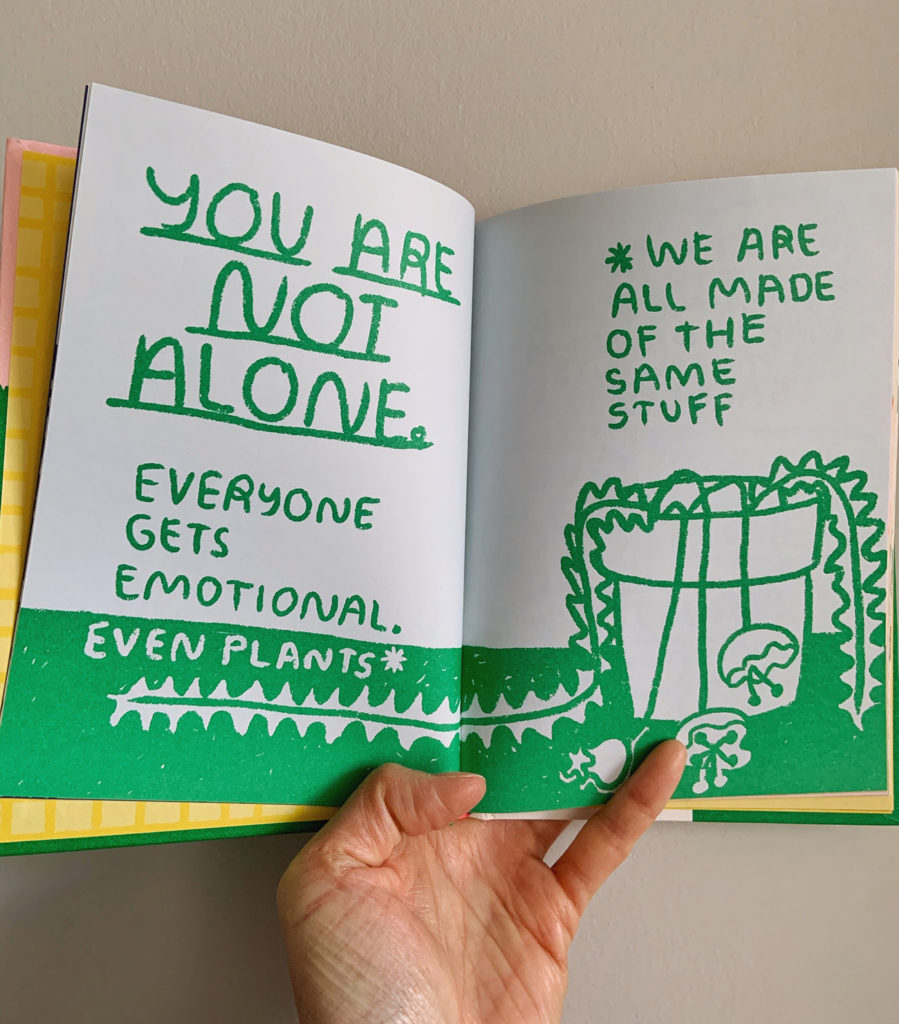 YOU ARE
NOT
ALONE.
EVERYONE
GETS
EMOTIONAL.
EVEN PLANTS*
*WE ARE
ALL MADE
OF THE
SAME
STUFF